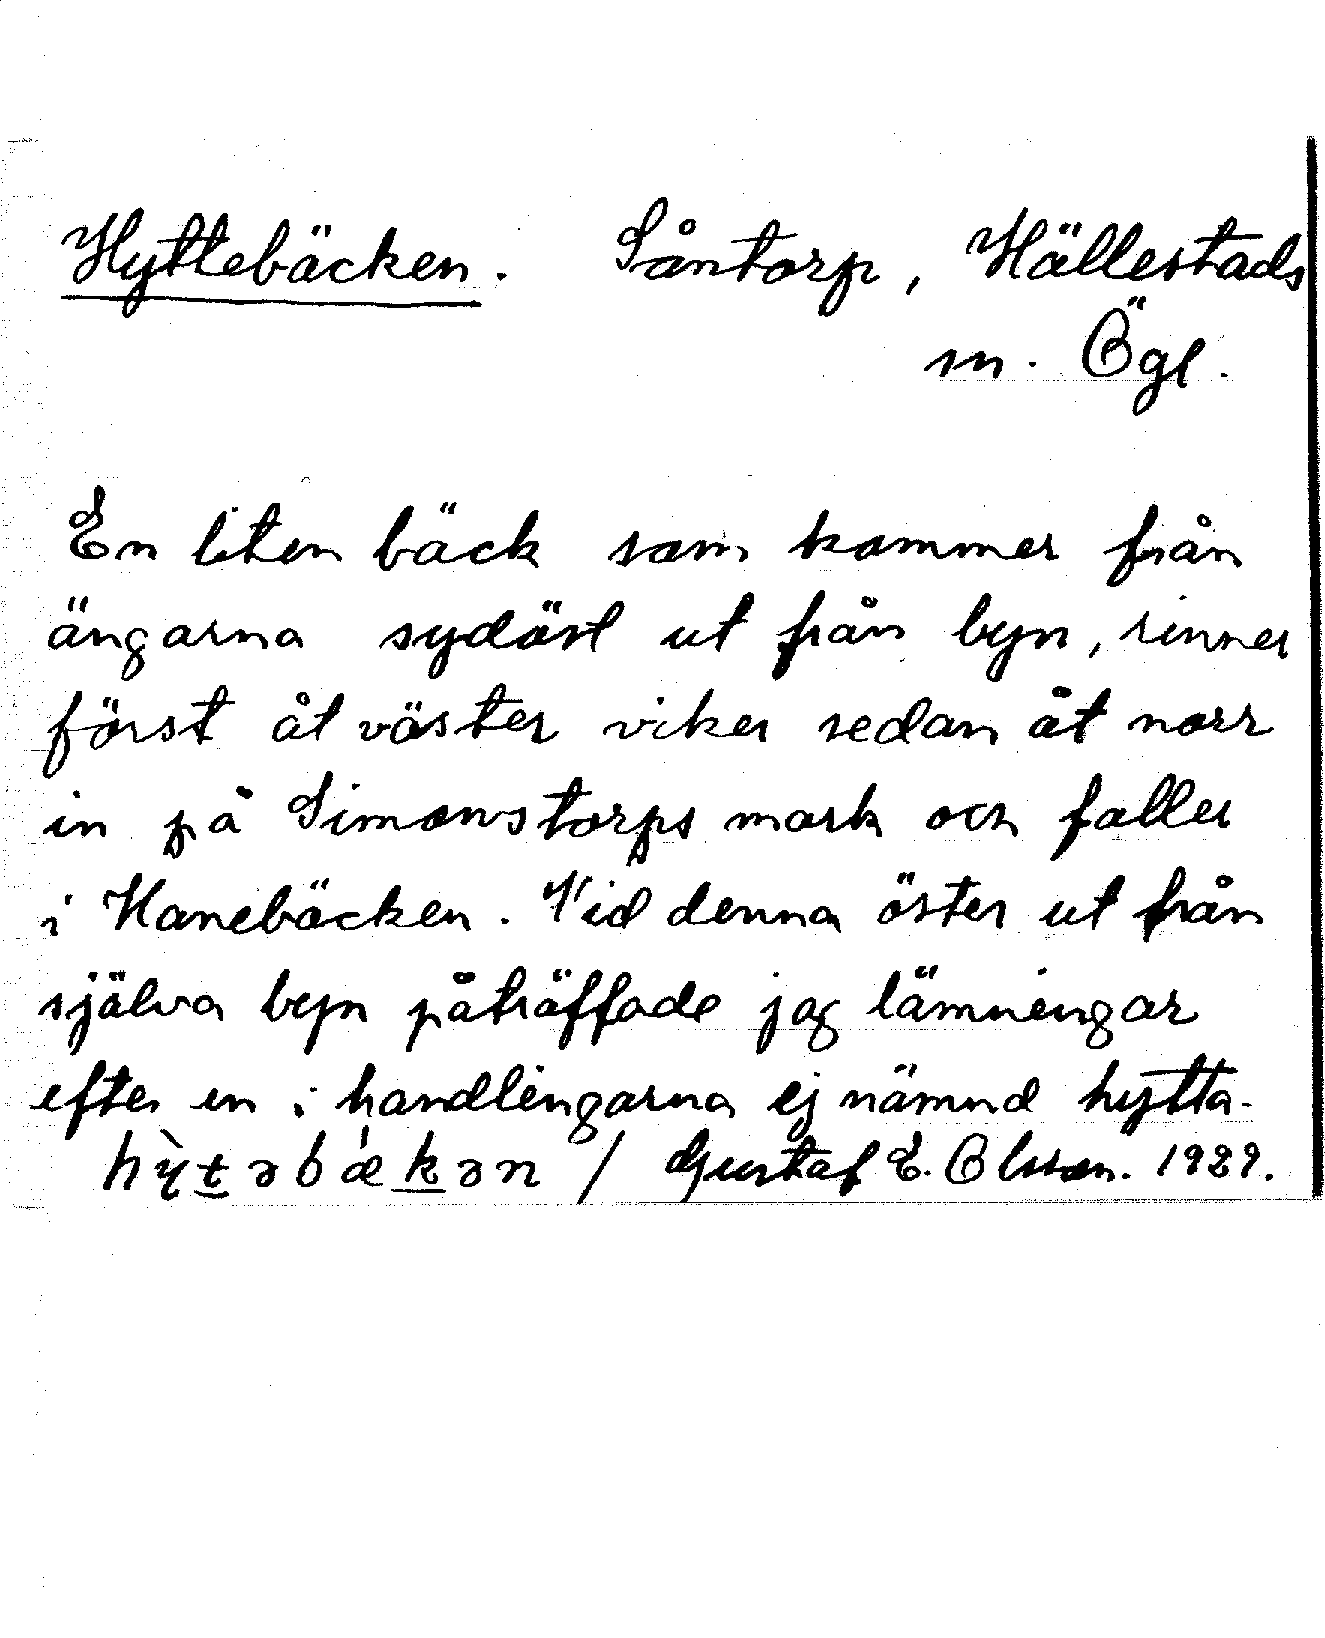 Hyttebäcken. Såntorp, Hällestads
m. Ögl.
En liten bäck som kommer från
ängarna sydöst ut från byn, rinner
först åt väster viker sedan åt norr
in på Simonstorps mark och faller
i Hanebäcken. Vid denna öster ut från
själva byn påträffade jag lämningar
efter en i handlingarna ej nämnd hytta.
hỳtəbǽkən / Gustaf E. Olsson. 1929.